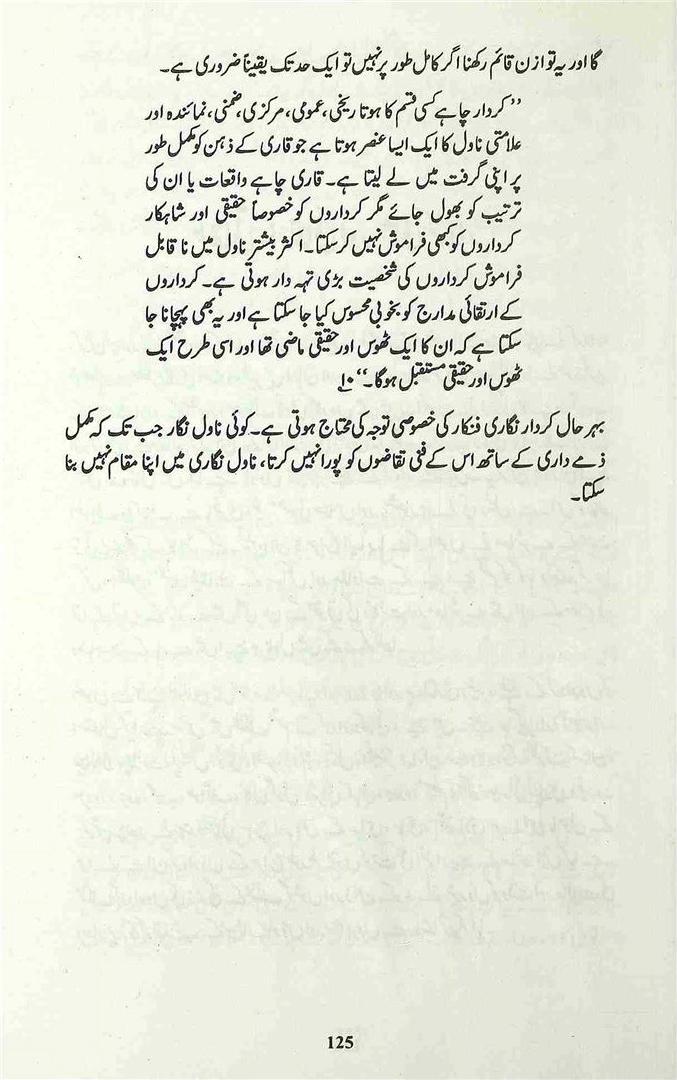 گا اور یہ توازن قائم رکھنا اگر کامل طور پر نہیں تو ایک حد تک یقیناً ضروری ہے۔
”کردار چاہے کسی قسم کا ہو تاریخی، عمومی، مرکزی، ضمنی، نمائندہ اور
علامتی ناول کا ایک ایسا عنصر ہوتا ہے جو قاری کے ذہن کو مکمل طور
پر اپنی گرفت میں لے لیتا ہے۔ قاری چاہے واقعات یا ان کی
ترتیب کو بھول جائے مگر کرداروں کو خصوصاً حقیقی اور شاہکار
کرداروں کو کبھی فراموش نہیں کر سکتا۔ اکثر بیشتر ناول میں ناقابل
فراموش کرداروں کی شخصیت بڑی تہہ دار ہوتی ہے۔ کرداروں
کے ارتقائی مدارج کو بخوبی محسوس کیا جا سکتا ہے اور یہ بھی پہچانا جا
سکتا ہے کہ ان کا ایک ٹھوس اور حقیقی ماضی تھا اور اسی طرح ایک
ٹھوس اور حقیقی مستقبل ہوگا۔“ ۱۰
بہر حال کردار نگاری فنکار کی خصوصی توجہ کی محتاج ہوتی ہے۔ کوئی ناول نگار جب تک کہ مکمل
ذمے داری کے ساتھ اس کے فنی تقاضوں کو پورا نہیں کرتا، ناول نگاری میں اپنا مقام نہیں بنا
سکتا۔
125